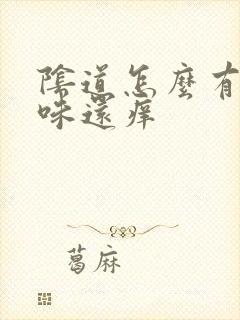 陰道怎麼有
味還癢
葛麻